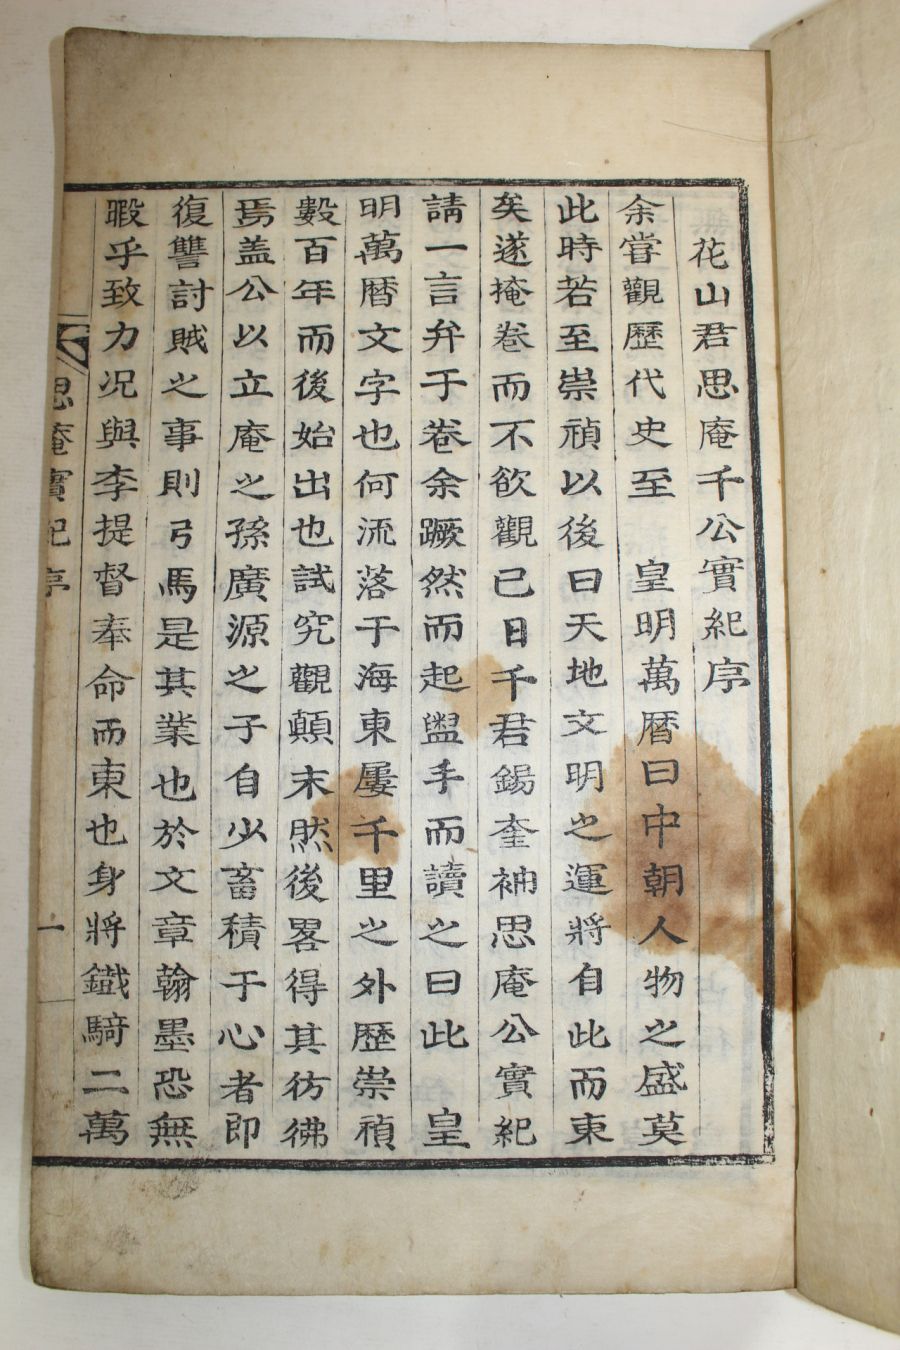 花山君思庵千公實紀序
余嘗觀歷代史至 皇明萬曆曰中朝人物之盛莫
此時若至崇禎以後曰天地文明之運將自此而東
矣遂掩卷而不欲觀已日千君錫奎袖思庵公實紀
請一言弁于卷余蹶然而起盥手而讀之曰此 皇
明萬曆文字也何流落于海東屢千里之外歷崇禎
數百年而後始出也試究觀顛末然後畧得其彷彿
焉盖公以立庵之孫廣源之子自少畜積于心者即
復讐討賊之事則弓馬是其業也於文章翰墨恐無
暇乎致力况與李提督奉命而東也身將鐵騎二萬
思庵實紀序 一